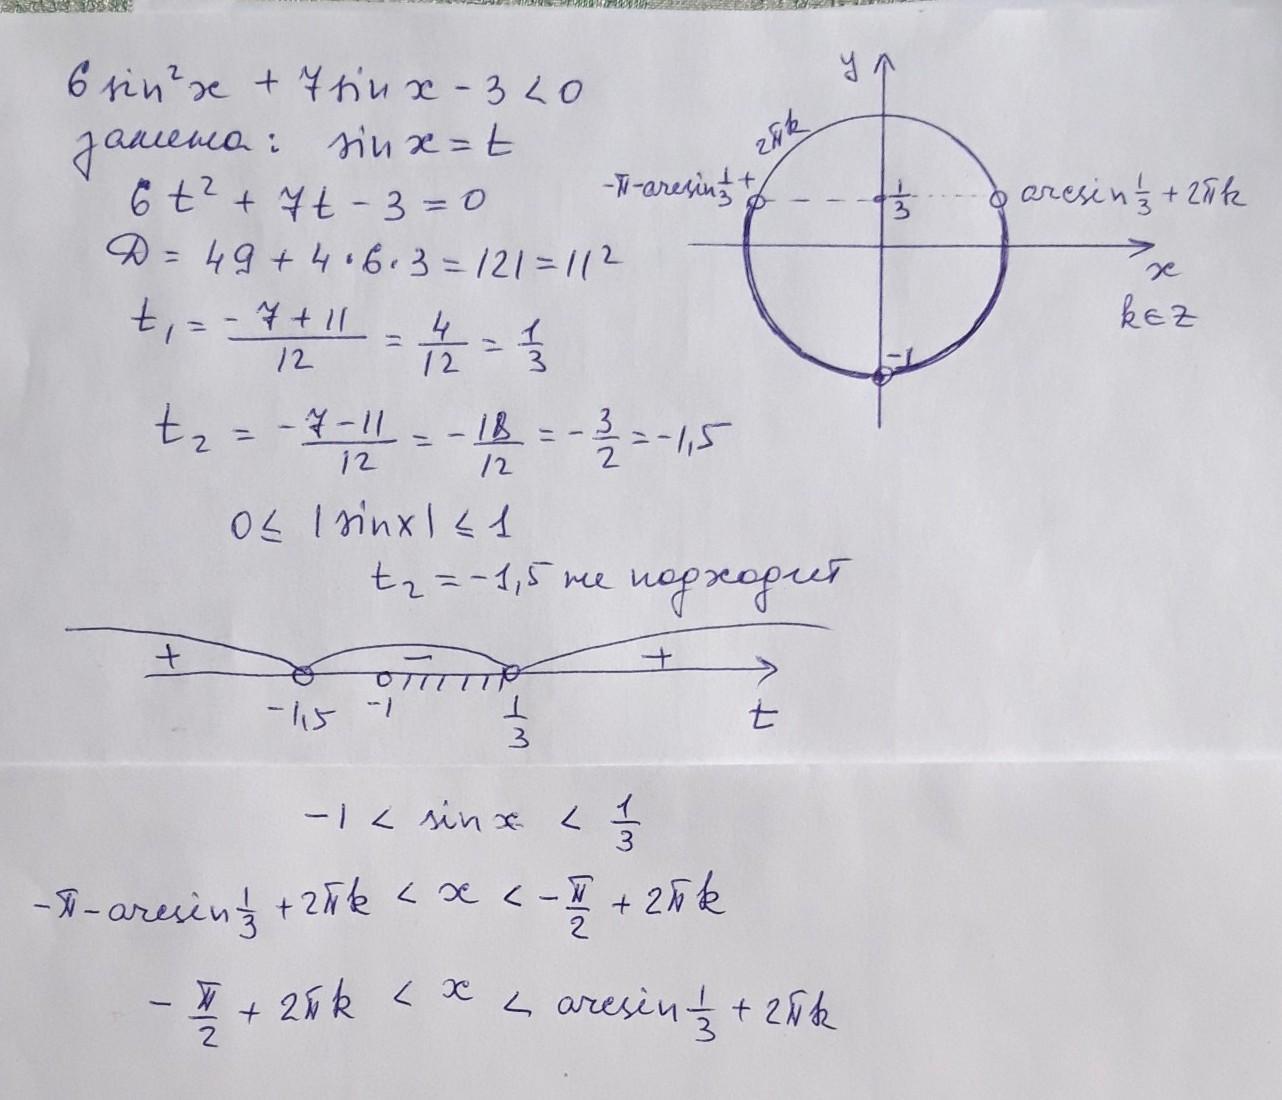 6 sin²x + 7 sin x - 3 < 0
замена: sin x = t
6t² + 7t - 3 = 0
D = 49 + 4·6·3 = 121 = 11²
t₁ = (-7+11)/12 = 4/12 = 1/3
t₂ = (-7-11)/12 = -18/12 = -3/2 = -1,5
0 ≤ |sin x| ≤ 1
t₂ = -1,5 не подходит
+ - +
-1,5 -1 1/3 t
y
2πk
-π-arcsin 1/3 +
1/3
arcsin 1/3 + 2πk
x
k∈Z
-1
-1 < sin x < 1/3
-π-arcsin 1/3 + 2πk < x < -π/2 + 2πk
-π/2 + 2πk < x < arcsin 1/3 + 2πk